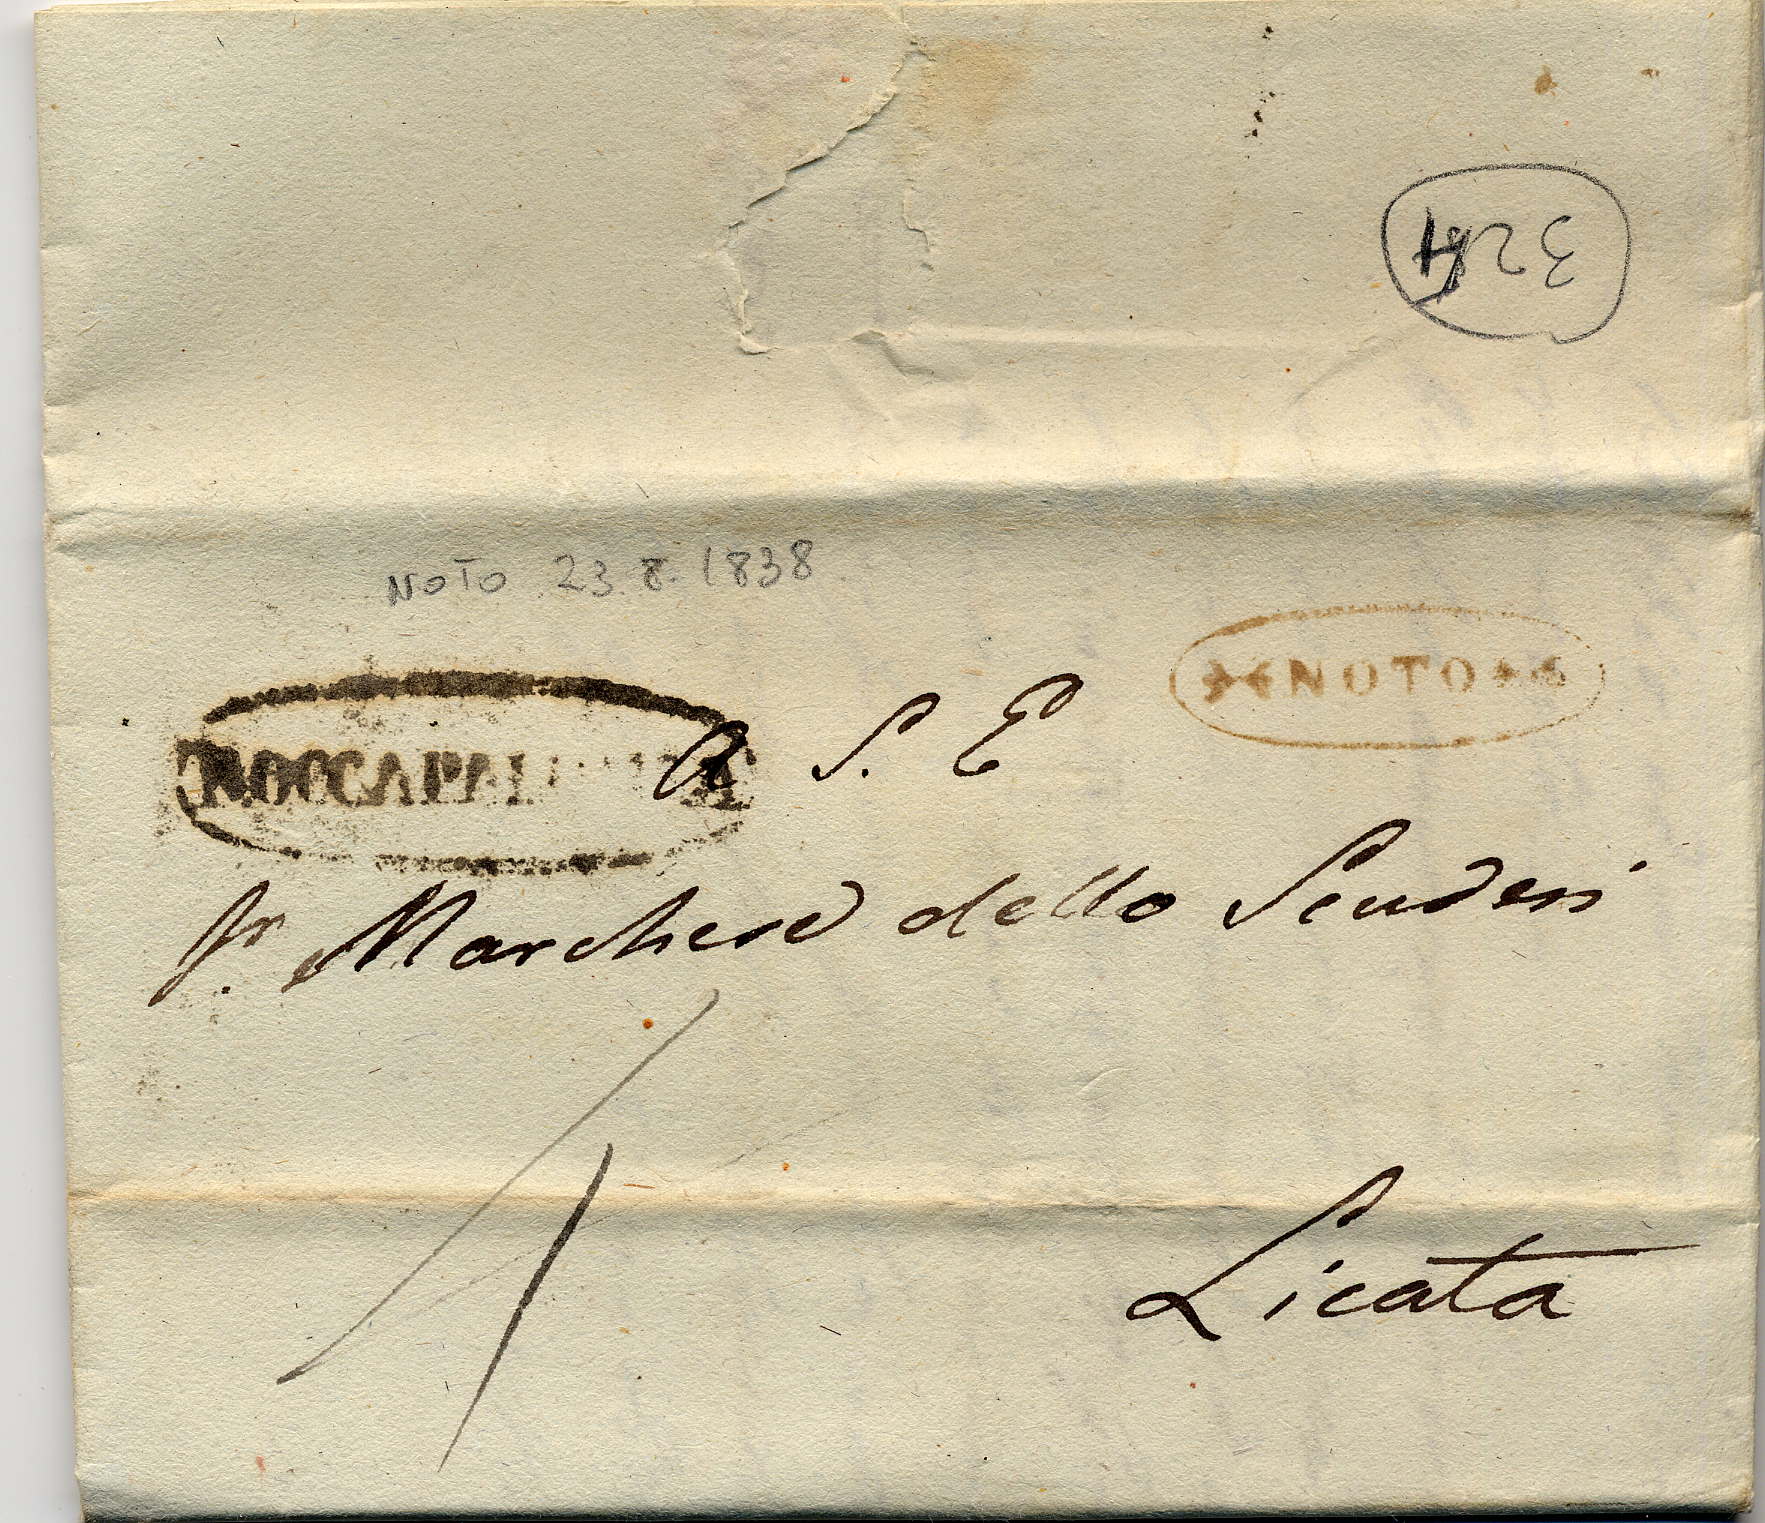 324
NOTO 23.8.1838
NOTO
ROCCAPALUMBA
A S. E
Sr. Marchese dello Scuderi
Licata